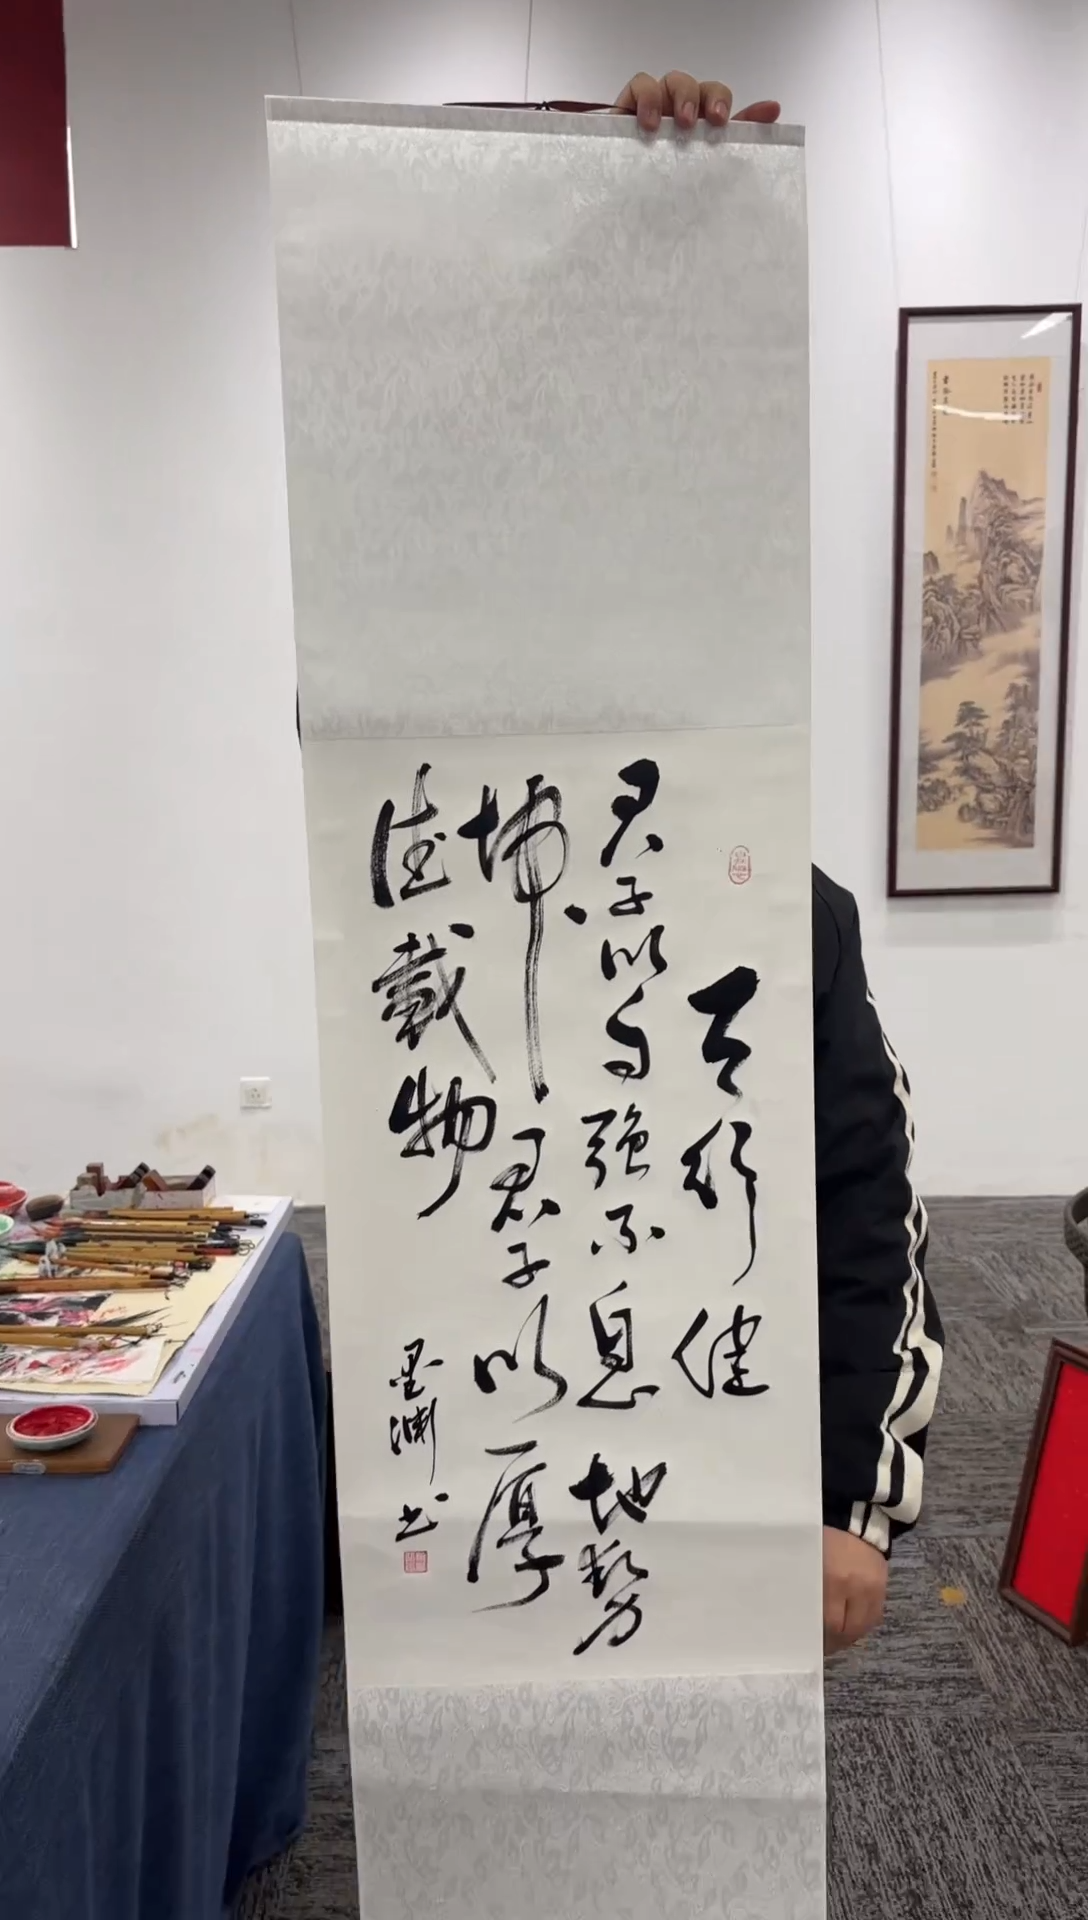 天行健
君子以自强不息地势
坤君子以厚
德载物
墨渊书